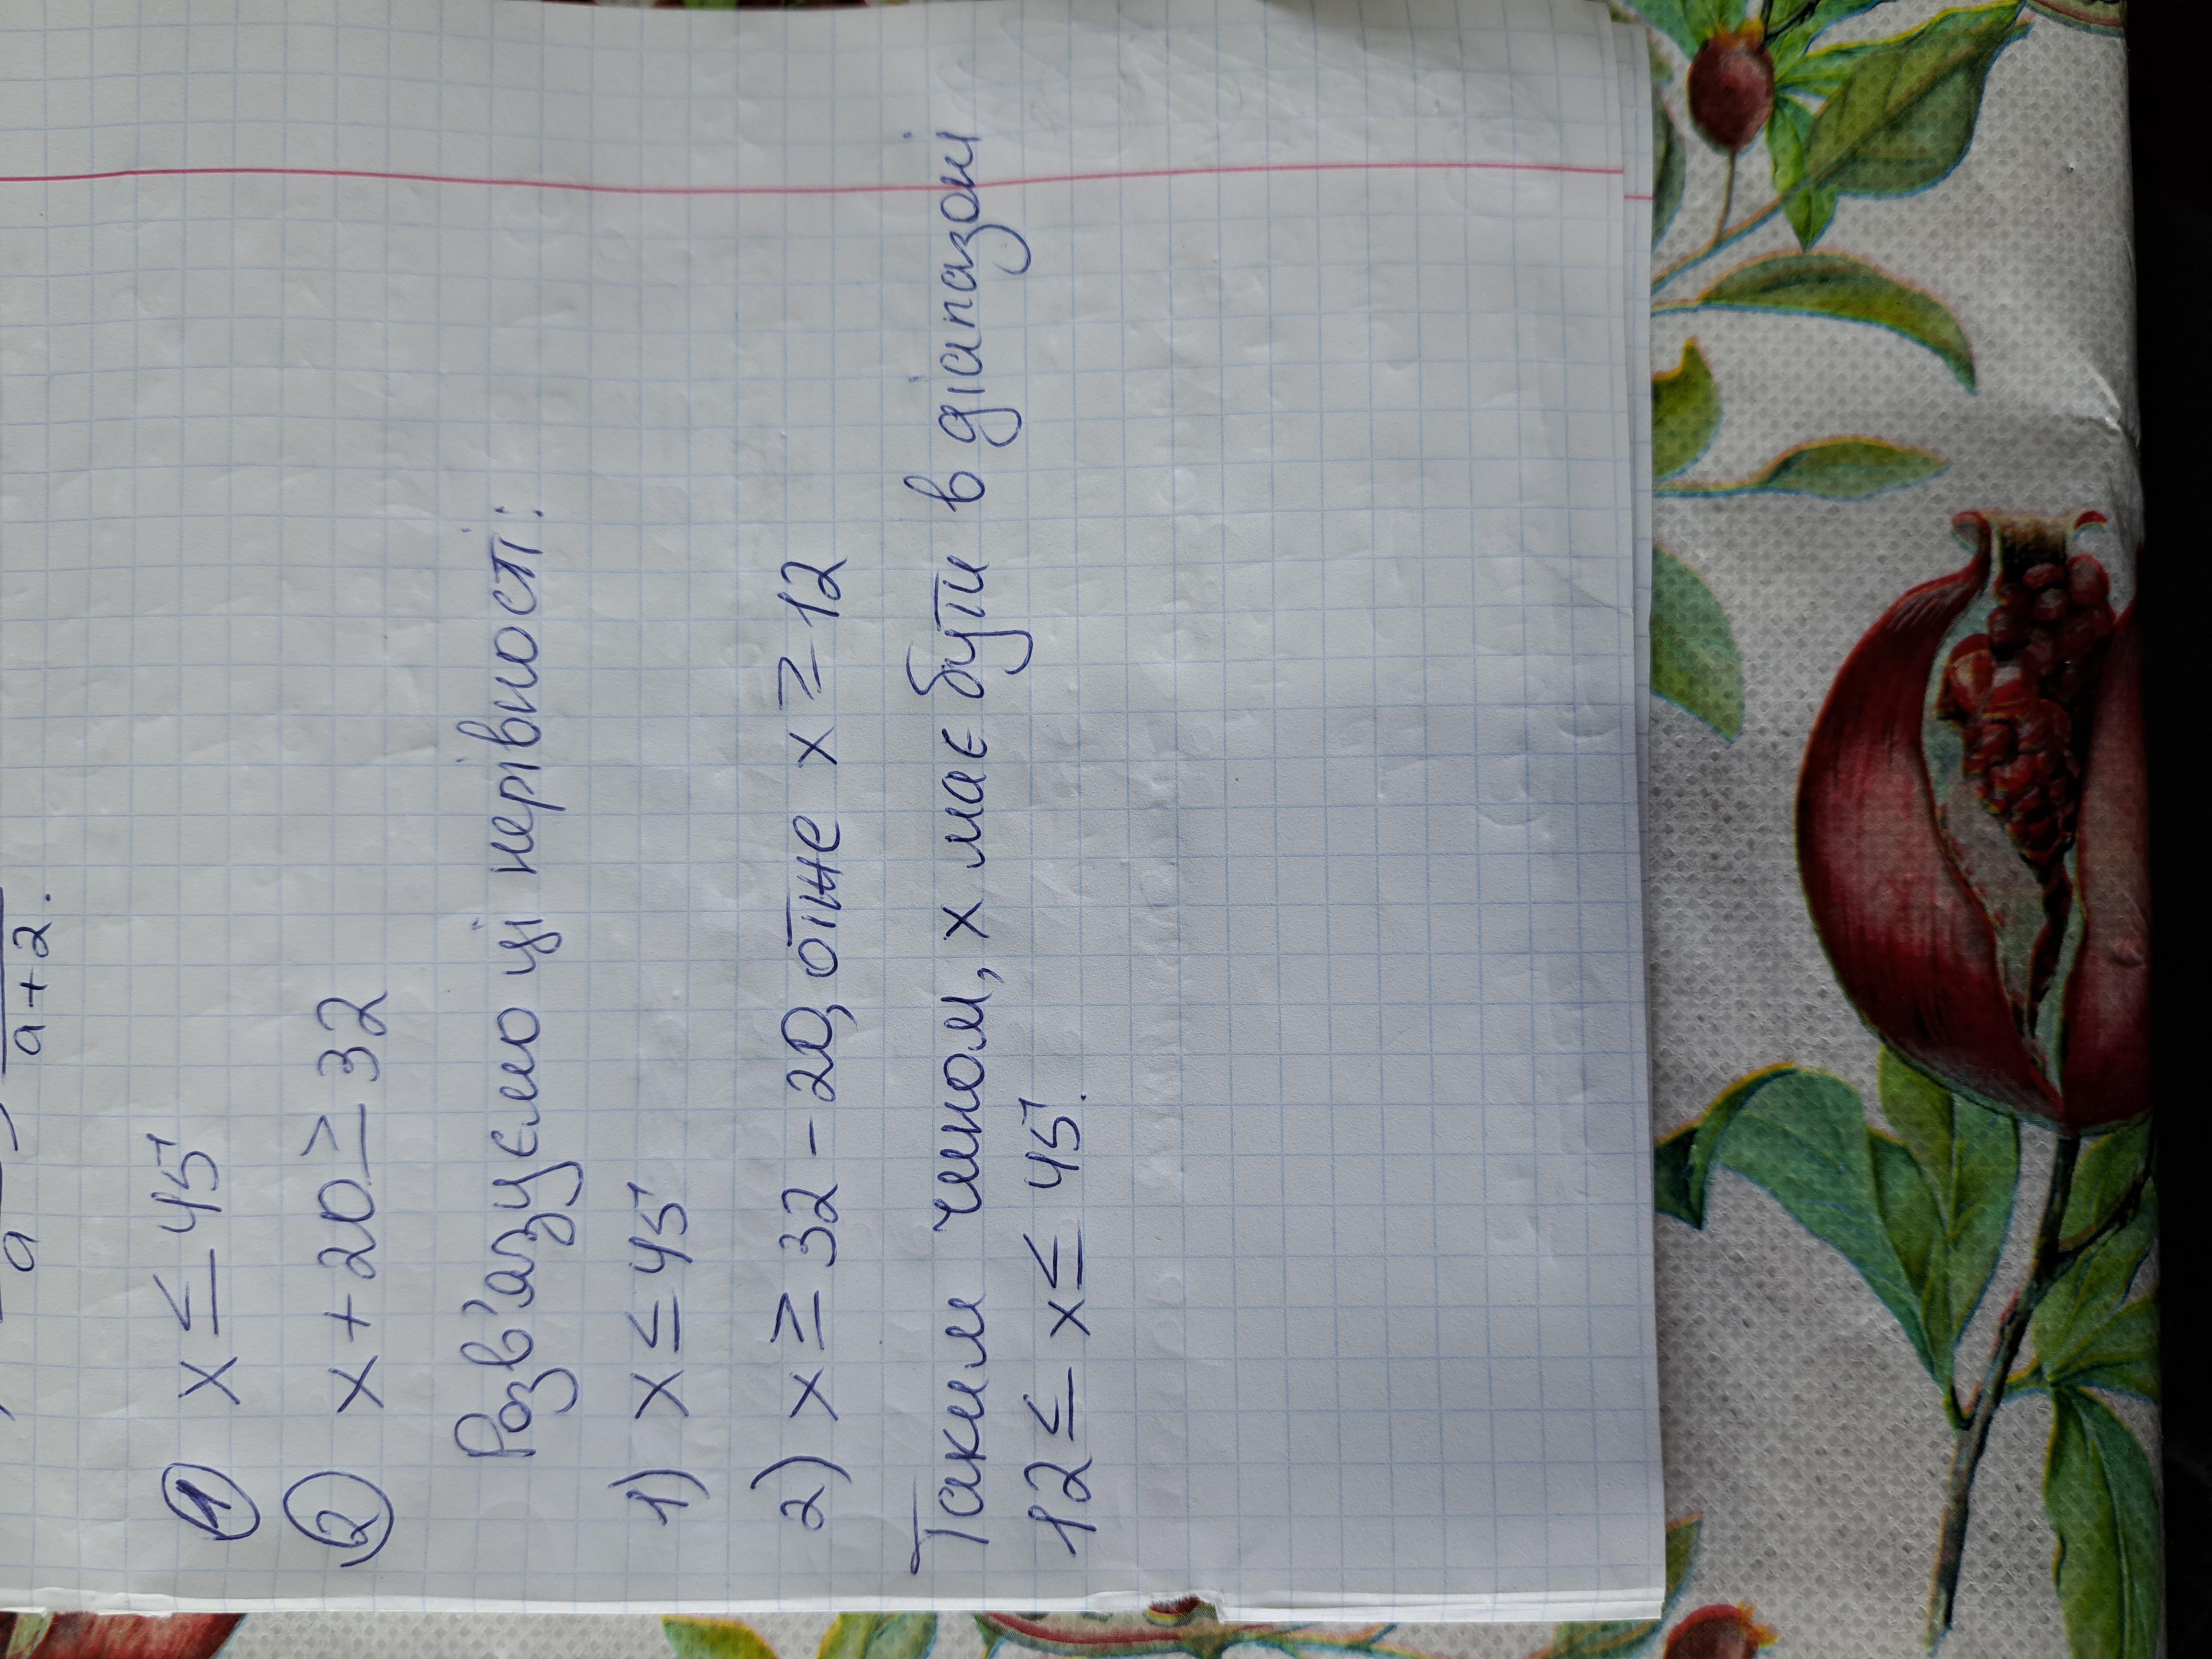 a
a+2.
① x ≤ 45
② x + 20 ≥ 32
Розв'язуємо ці нерівності:
1) x ≤ 45
2) x ≥ 32 - 20, отже x ≥ 12
Таким чином, x має бути в діапазоні
12 ≤ x ≤ 45.